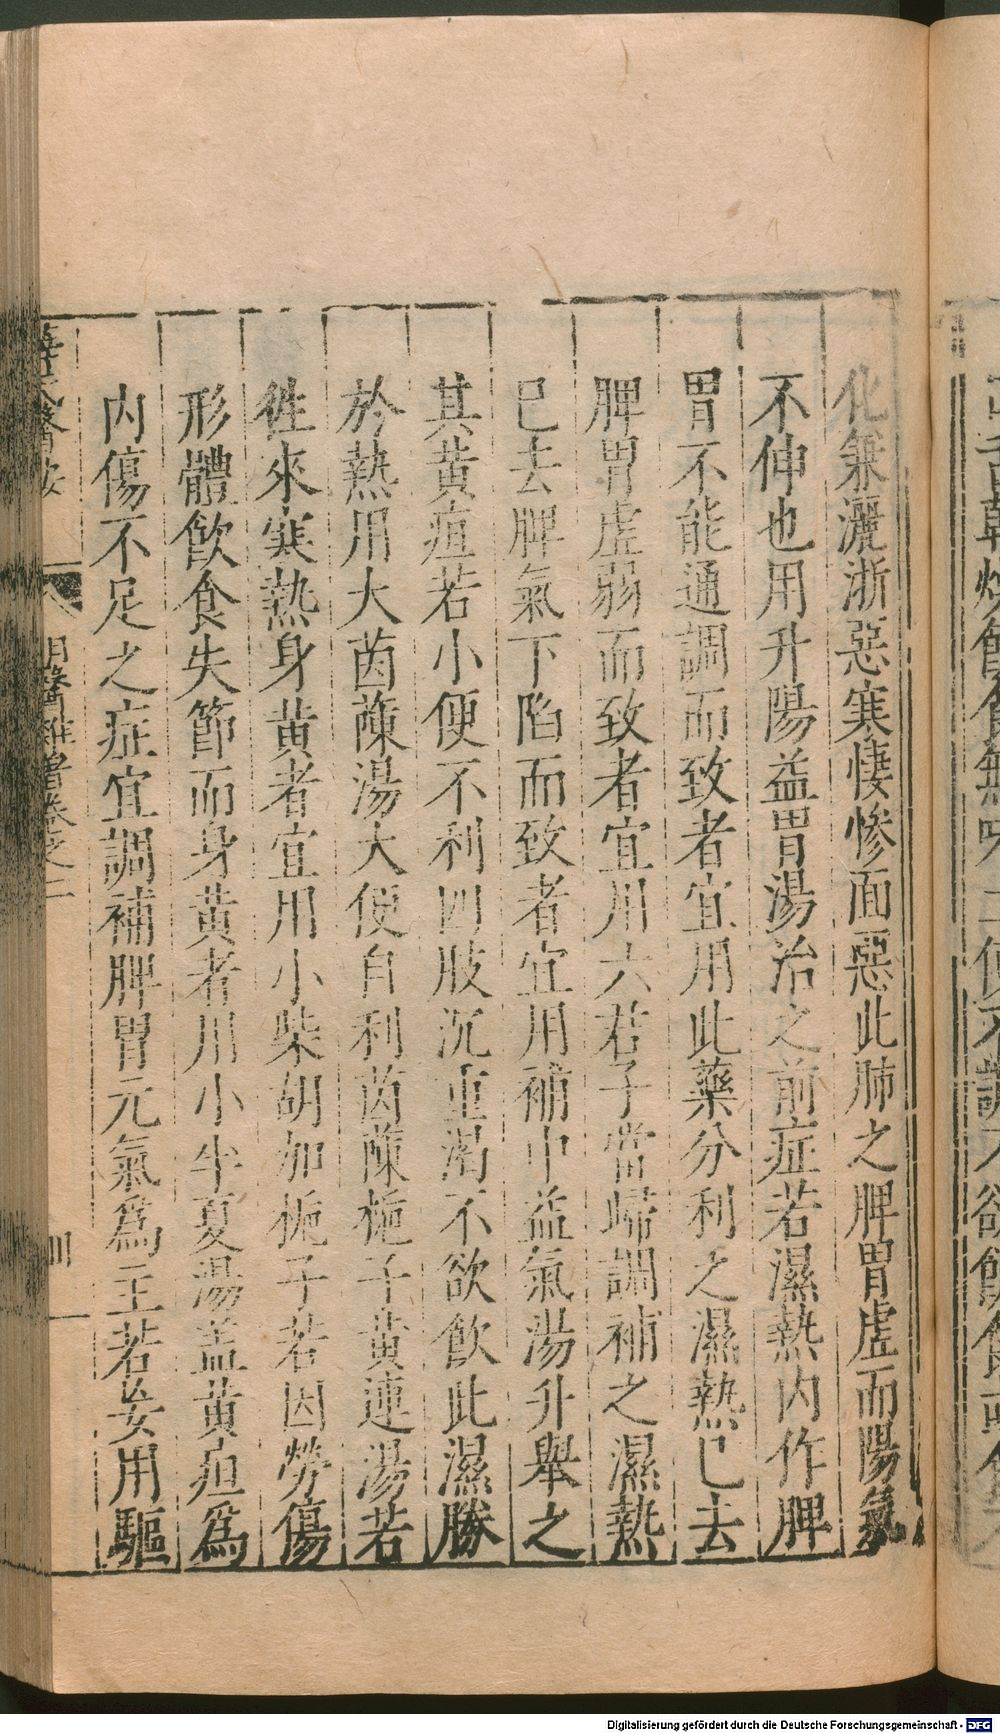 化兼灑淅惡寒悽慘面惡此肺之脾胃虛而陽氣
不伸也用升陽益胃湯治之前症若濕熱内作脾
胃不能通調而致者宜用此藥分利之濕熱已去
脾胃虛弱而致者宜用六君子當歸調補之濕熱
已去脾氣下陷而致者宜用補中益氣湯升舉之
其黄疸若小便不利四肢沉重渴不欲飲此濕勝
於熱用大茵蔯湯大便自利茵蔯梔子黄連湯若
徃來寒熱身黄者宜用小柴胡加梔子若因勞傷
形體飲食失節而身黄者用小半夏湯盖黄疸爲
内傷不足之症宜調補脾胃元氣爲主若妄用驅
薛氏醫按 明醫雜著卷之二
Digitalisierung gefördert durch die Deutsche Forschungsgemeinschaft - DFG